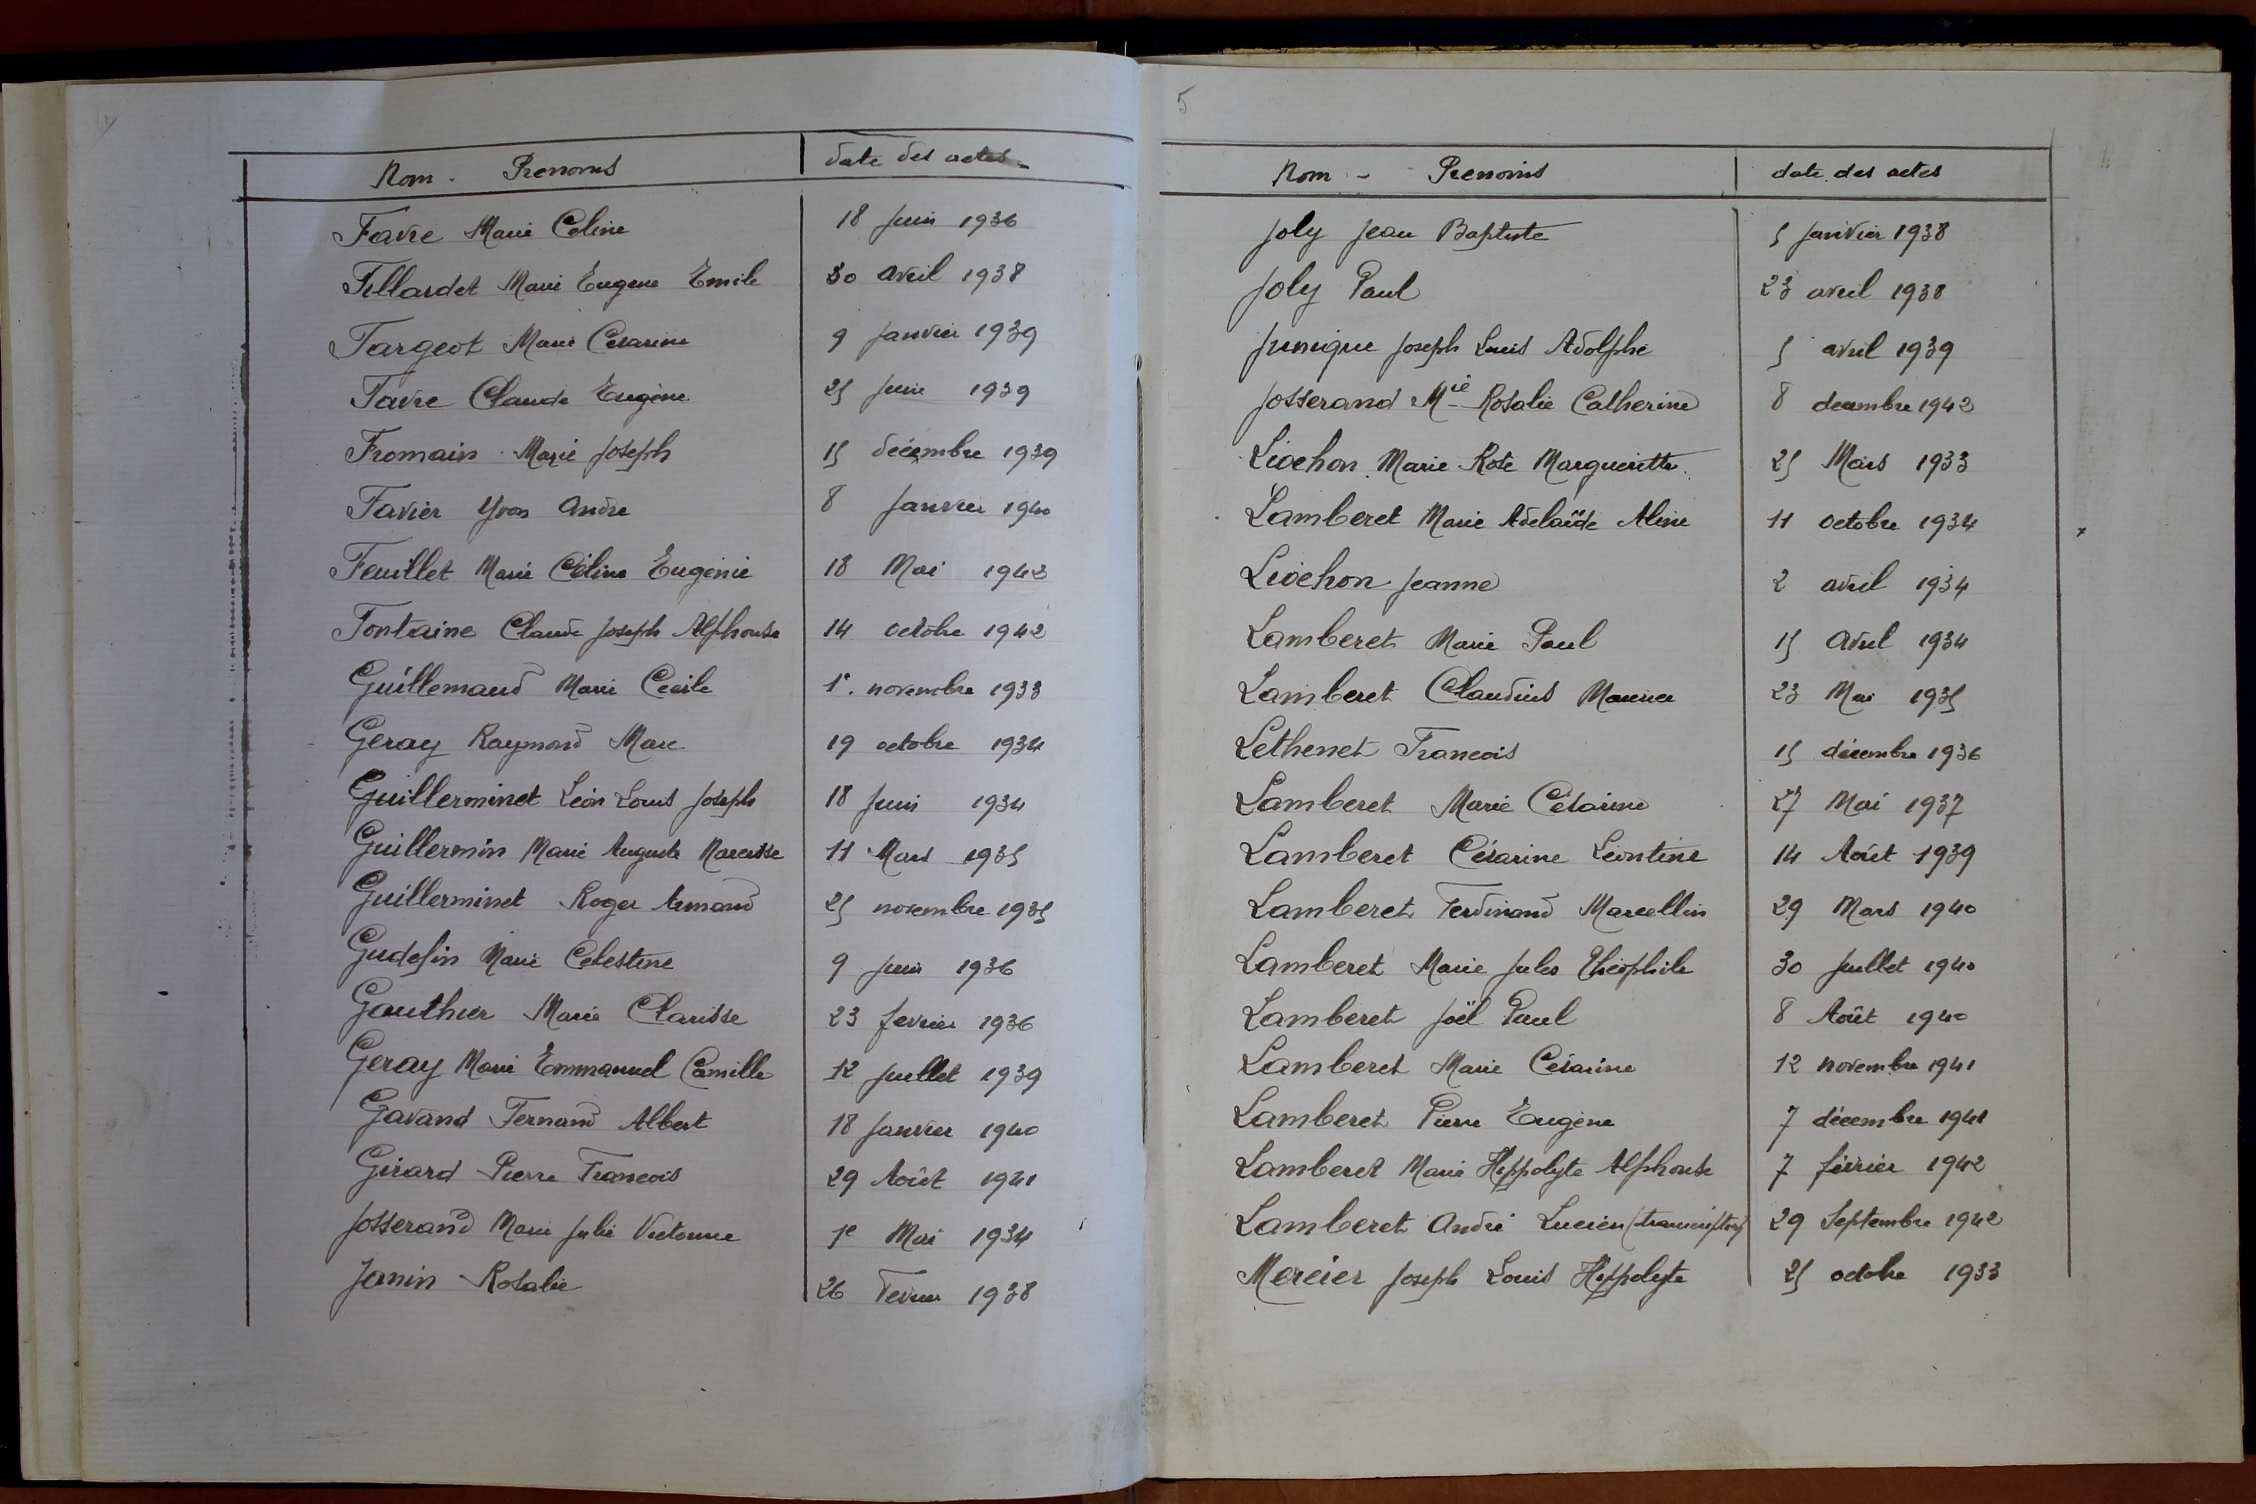 Nom - Prenoms date des actes
Favre Marie Celine 18 Juin 1936
Fillardet Marie Eugene Emile 30 avril 1938
Fargeot Marie Cesarine 9 Janvier 1939
Favre Claude Eugène 25 Juin 1939
Fromain Marie Joseph 15 décembre 1939
Favier Yvon André 8 Janvier 1940
Feuillet Marie Céline Eugénie 18 Mai 1942
Fontaine Claude Joseph Alphonse 14 octobre 1942
Guillemaud Marie Cecile 1er novembre 1933
Geray Raymond Marc 19 octobre 1934
Guillerminet Léon Louis Joseph 18 Juin 1934
Guillermin Marie Auguste Narcisse 11 Mars 1935
Guillerminet Roger Armand 25 novembre 1935
Gudefin Marie Celestine 9 Juin 1936
Gauthier Marie Clarisse 23 fevrier 1936
Geray Marie Emmanuel Camille 12 Juillet 1939
Gavand Fernand Albert 18 Janvier 1940
Girard Pierre Francois 29 Août 1941
Josserand Marie Julie Victorine 1e Mai 1934
Janin Rosalie 26 Fevrier 1938
5
Nom - Prenoms date des actes
Joly Jean Baptiste 5 Janvier 1938
Joly Paul 23 avril 1938
Junique Joseph Louis Adolphe 5 avril 1939
Josserand Mie Rosalie Catherine 8 decembre 1942
Liochon Marie Rose Marguerite 25 Mars 1933
Lamberet Marie Adelaïde Aline 11 octobre 1934
Liochon Jeanne 2 avril 1934
Lamberet Marie Paul 15 Avril 1934
Lamberet Claudius Maurice 23 Mai 1935
Lethenet Francois 15 décembre 1936
Lamberet Marie Césarine 27 Mai 1937
Lamberet Césarine Léontine 14 Août 1939
Lamberet Ferdinand Marcellin 29 Mars 1940
Lamberet Marie Jules Théophile 30 Juillet 1940
Lamberet Joël Paul 8 Août 1940
Lamberet Marie Césarine 12 novembre 1941
Lamberet Pierre Eugène 7 décembre 1941
Lamberet Marie Hippolyte Alphonse 7 février 1942
Lamberet André Lucien (transcription) 29 Septembre 1942
Mercier Joseph Louis Hippolyte 25 octobre 1933